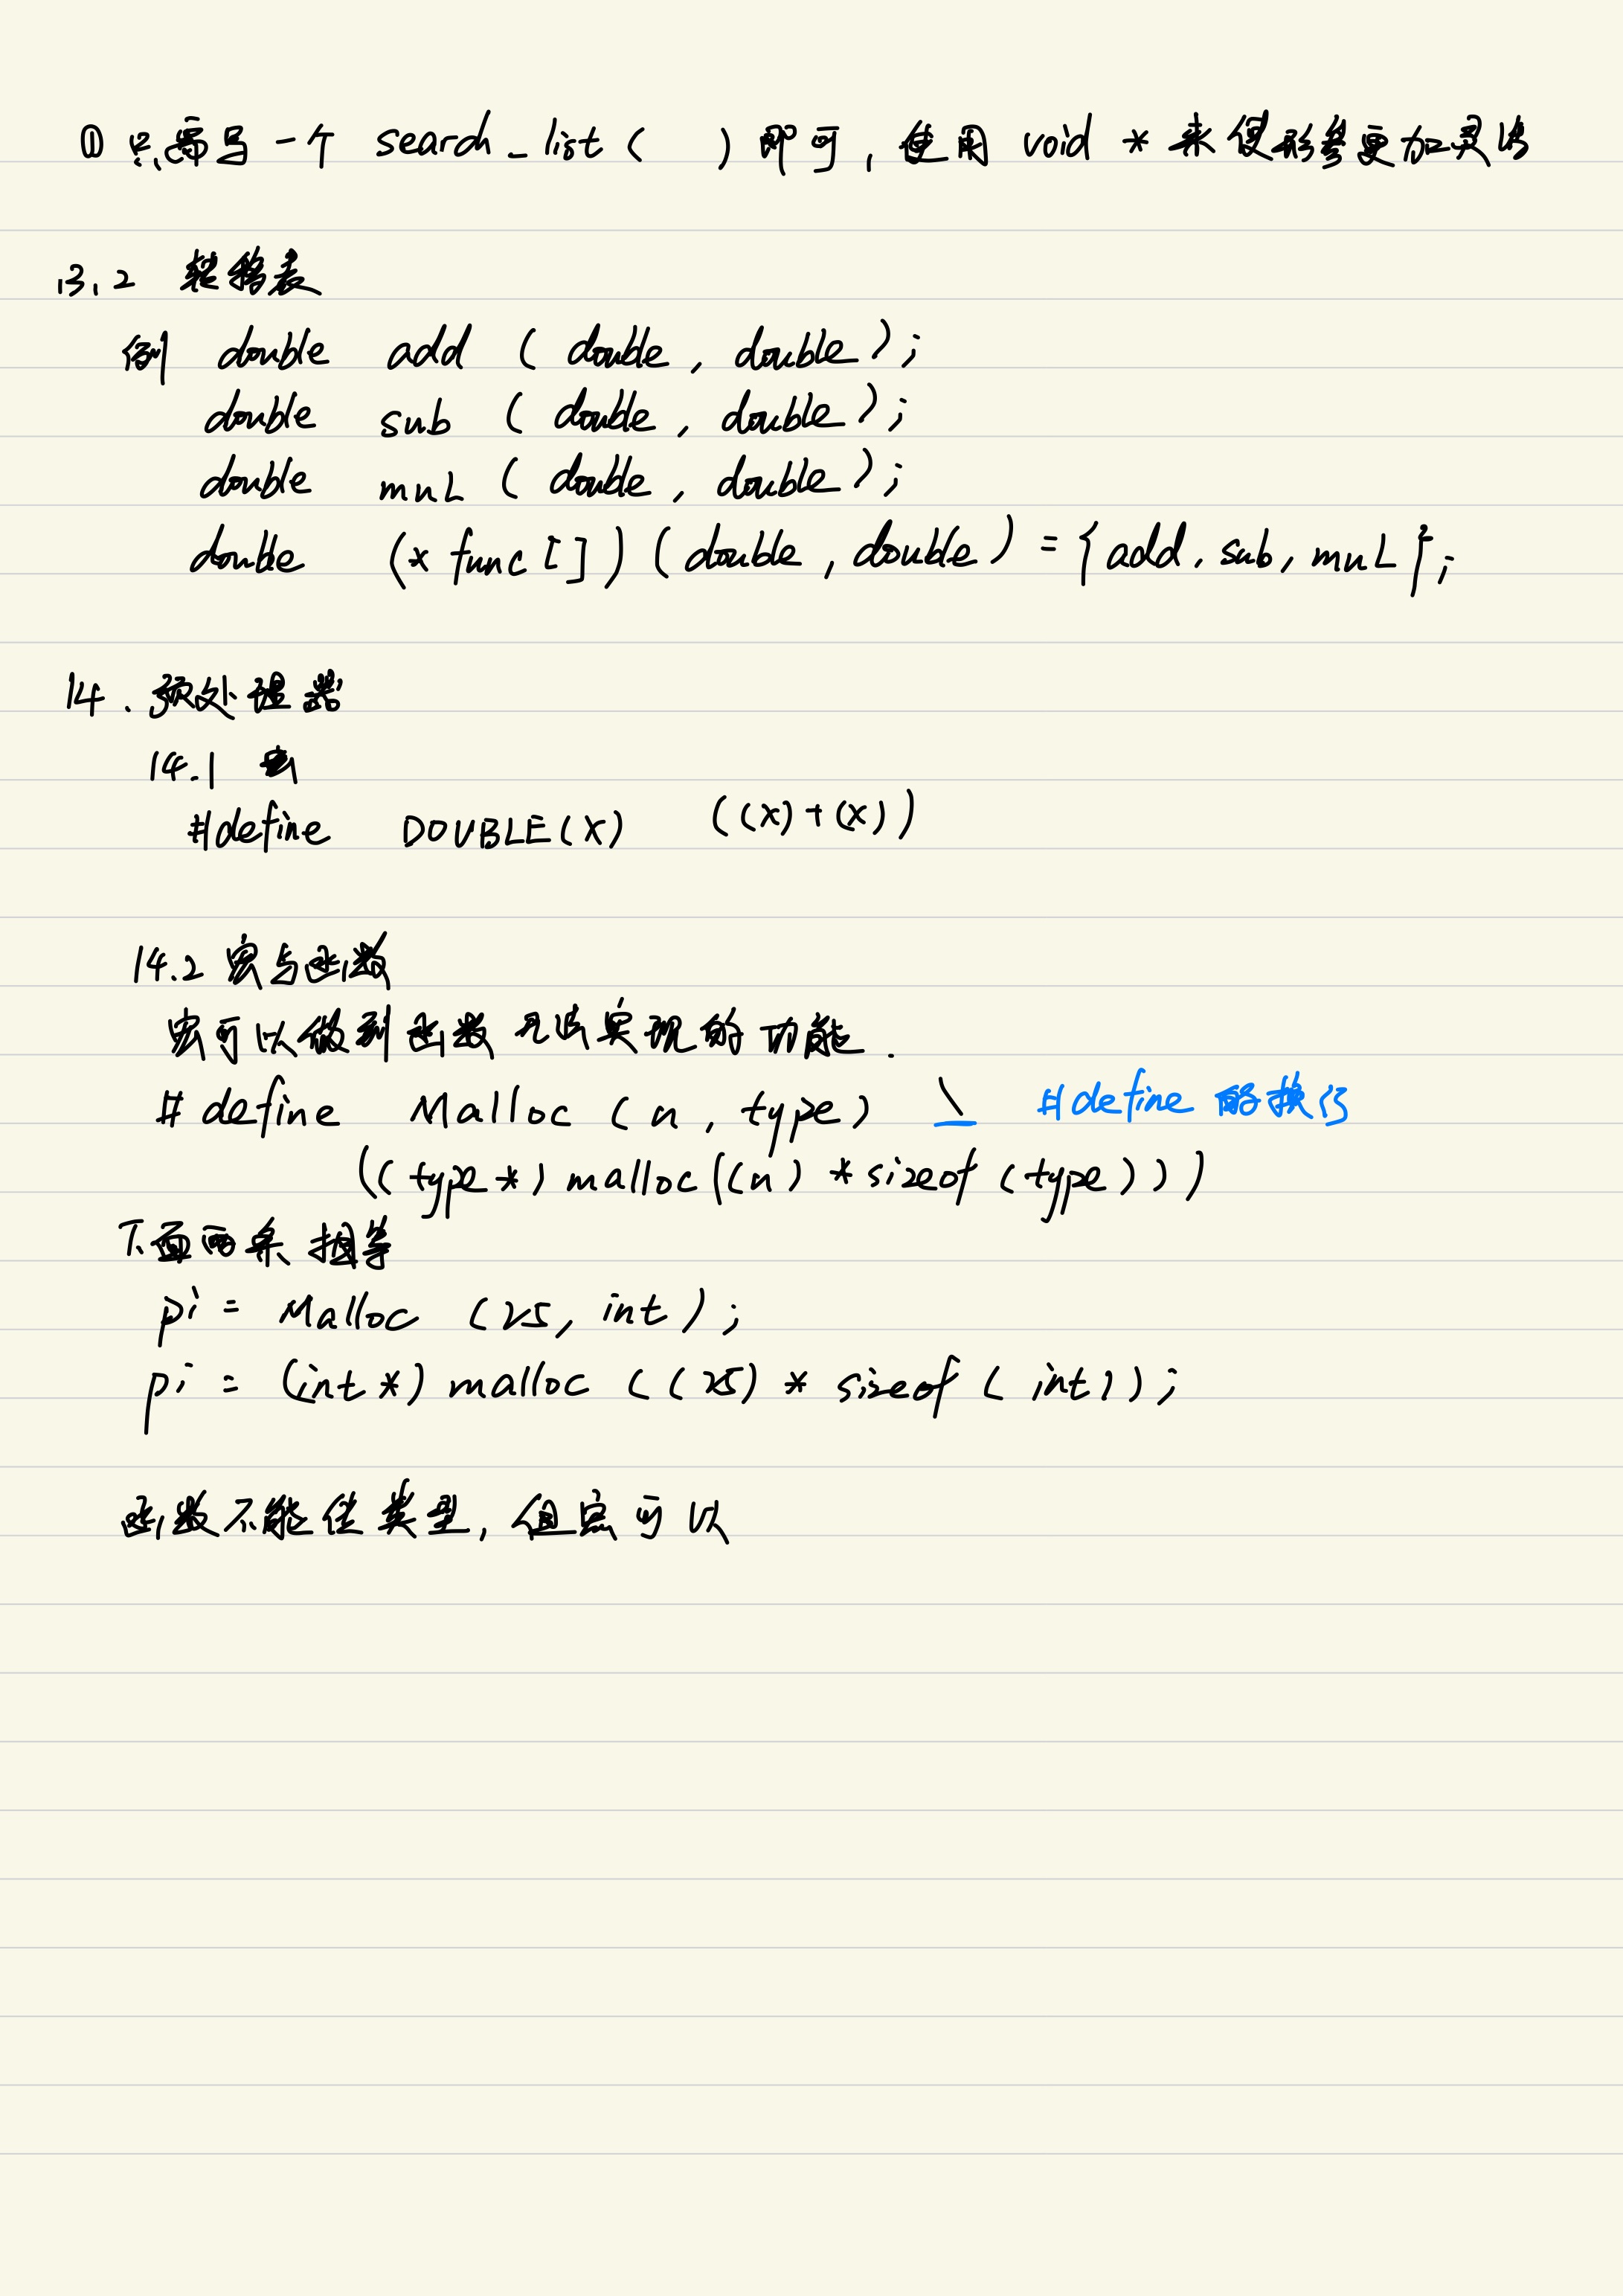 ① 只需写一个 search_list ( ) 即可, 使用 void * 来使形参更加灵活
13.2 转移表
例 double add ( double , double );
double sub ( double , double );
double muL ( double , double );
double (* func [] ) ( double , double ) = { add , sub , muL };
14 . 预处理器
14.1 宏
#define DOUBLE(X) ((x)+(x))
14.2 宏与函数
宏可以做到函数无法实现的功能 .
# define Malloc ( n , type ) \ #define 的换行
(( type * ) malloc ((n) * sizeof ( type ) ) )
下面两条相等
pi = Malloc ( 25 , int ) ;
pi = (int *) malloc ( ( 25 ) * sizeof ( int ) ) ;
函数不能传类型, 但宏可以